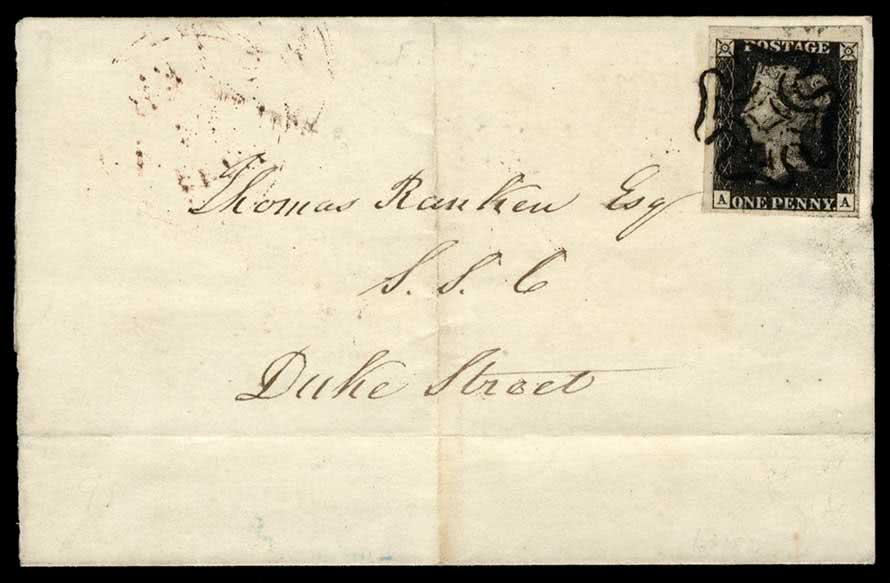 POSTAGE
A ONE PENNY A
Thomas Ranken Esq
S. S. C
Duke Street